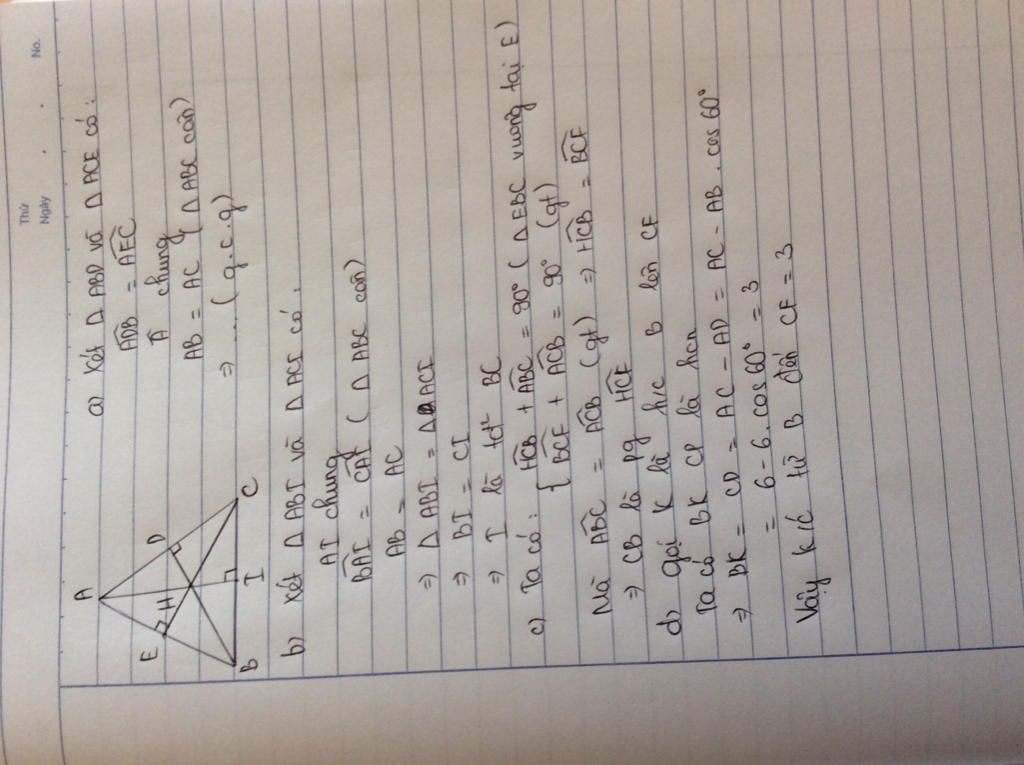 Thứ
Ngày
No.
A
E
H
D
B
I
C
a) Xét Δ ABD và Δ ACE có:
ADB = AEC
A chung
AB = AC (Δ ABC cân)
⇒ .... (g.c.g)
b) Xét Δ ABI và Δ ACI có:
AI chung
BAI = CAI (Δ ABC cân)
AB = AC
⇒ Δ ABI = Δ ACI
⇒ BI = CI
⇒ I là tđ BC
c) Ta có: { HCB + ABC = 90° (Δ EBC vuông tại E)
BCF + ACB = 90° (gt)
Mà ABC = ACB (gt) ⇒ HCB = BCF
⇒ CB là pg HCF
d) gọi K là h/c B lên CF
Ta có BK CD là hcn
⇒ BK = CD = AC - AD = AC - AB . cos 60°
= 6 - 6.cos 60° = 3
Vậy k/c từ B đến CF = 3